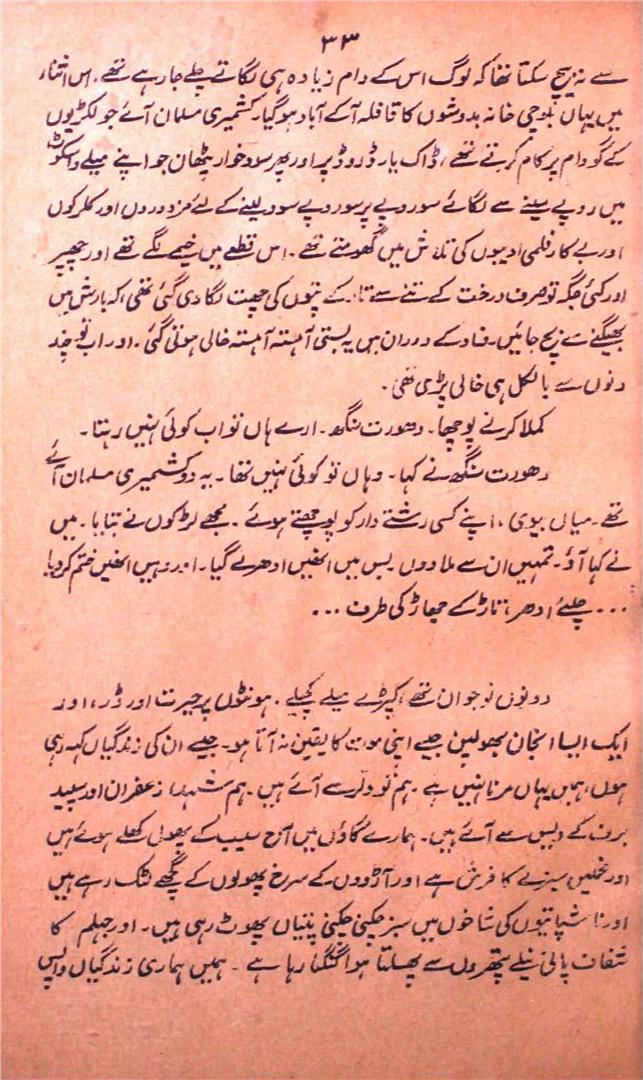 ۳۳
سے نہ بیچ سکتا تھا کہ لوگ اس کے دام زیادہ ہی لگاتے چلے جا رہے تھے۔ اس اثناء
میں یہاں بلوچی خانہ بدوشوں کا قافلہ آ کے آباد ہو گیا۔ کشمیری مسلمان آئے جو لکڑیوں
کے گودام پر کام کرتے تھے، ڈاک یارڈ روڈ پر اور پھر سود خوار پٹھان جو اپنے میلے واسکوٹ
میں روپے سینے سے لگائے سو روپے پر سو روپے سود لینے کے لئے مزدوروں اور کلرکوں
اور بے کار فلمی ادیبوں کی تلاش میں گھومتے تھے۔ اس قطعے میں خیمے لگے تھے اور چھپر
اور کئی جگہ تو صرف درخت کے تنے سے تاڑ کے پتوں کی چھت لگا دی گئی تھی، کہ بارش میں
بھیگنے سے بچ جائیں۔ فساد کے دوران میں یہ بستی آہستہ آہستہ خالی ہوتی گئی۔ اور اب تو چند
دنوں سے بالکل ہی خالی پڑی تھی۔
کملاکر نے پوچھا۔ دھورت سنگھ۔ ارے ہاں تو اب کوئی نہیں رہتا۔
دھورت سنگھ نے کہا۔ وہاں تو کوئی نہیں تھا۔ یہ دو کشمیری مسلمان آئے
تھے۔ میاں بیوی، اپنے کسی رشتے دار کو پوچھتے ہوئے۔ مجھے لڑکوں نے بتایا۔ میں
نے کہا آؤ۔ تمہیں ان سے ملا دوں بس میں انھیں ادھر لے گیا۔ اور وہیں انھیں ختم کر دیا
... چلئے ادھر، تاڑ کے جھاڑ کی طرف ...
دونوں نوجوان تھے، کپڑے میلے کچیلے۔ ہونٹوں پر حیرت اور ڈر، اور
ایک ایسا انجان بھولپن جیسے اپنی موت کا یقین نہ آتا ہو۔ جیسے ان کی زندگیاں کہہ رہی
ہوں، ہمیں یہاں مرنا نہیں ہے۔ ہم تو دلر سے آئے ہیں۔ ہم شہد، زعفران اور سپید
برف کے دیس سے آئے ہیں۔ ہمارے گاؤں میں آج سیب کے پھول کھلے ہوئے ہیں
اور مخملیں سبزے کا فرش ہے اور آڑوؤں کے سرخ پھولوں کے گچھے لٹک رہے ہیں
اور ناشپاتیوں کی شاخوں میں سبز چکنی چکنی پتیاں پھوٹ رہی ہیں۔ اور جہلم کا
شفاف پانی نیلے پتھروں سے پھسلتا ہوا گنگنا رہا ہے۔ ہمیں ہماری زندگیاں واپس